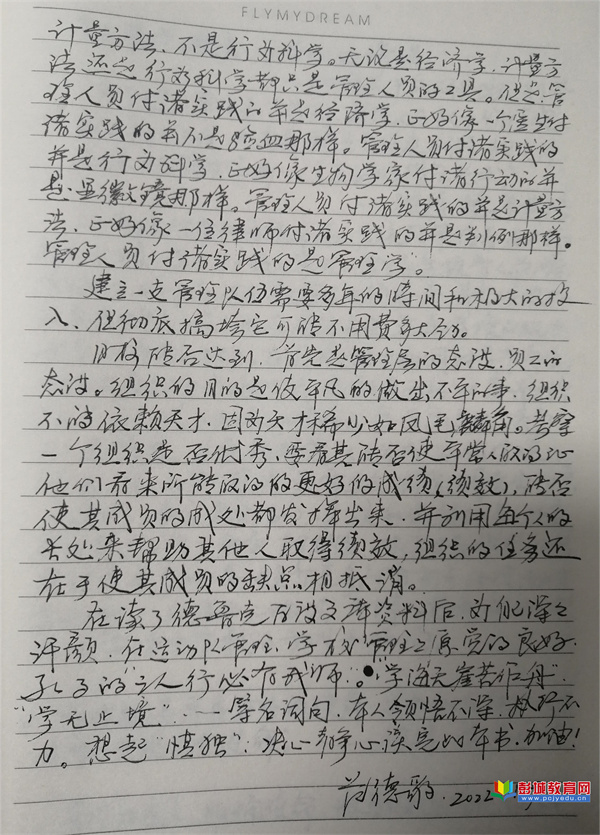 FLYMYDREAM
计量方法,不是行为科学。无论是经济学,计量方
法还是行为科学都只是管理人员的工具。但是,管
理人员付诸实践的并不是经济学,正好像一个医生付
诸实践的并不是验血那样。管理人员付诸实践的
并不是行为科学,正好像生物学家付诸行动的并
是显微镜那样。管理人员付诸实践的并不是计量方
法,正好像一位律师付诸实践的并不是判例那样。
管理人员付诸实践的是“管理学”。
建立一支管理队伍需要多年的时间和极大的投
入,但彻底搞垮它可能不用费多大劲。
目标能否达到,首先是管理层的态度,员工的
态度。组织的目的是使平凡的做出不平的事,组织
不能依赖天才,因为天才稀少如凤毛麟角。考察
一个组织是否优秀,要看其能否使平常人取得比
他们看来所能取得的更好的成绩(绩效),能否
使其成员的长处都发挥出来,并利用每个人的
长处来帮助其他人取得绩效,组织的任务还
在于使其成员的缺点相抵消。
在读了德鲁克 后 资料后,
汗颜,在运动队管理,学校管理之 的良好
孔子的“三人行必有我师”。“学海无涯苦作舟”
“学无止境”……一等名词句,本人领悟不深,执行不
力。想起“慎独”,决心静心读完此本书,加油!
德 2022
彭城教育网
www.pcjyedu.cn